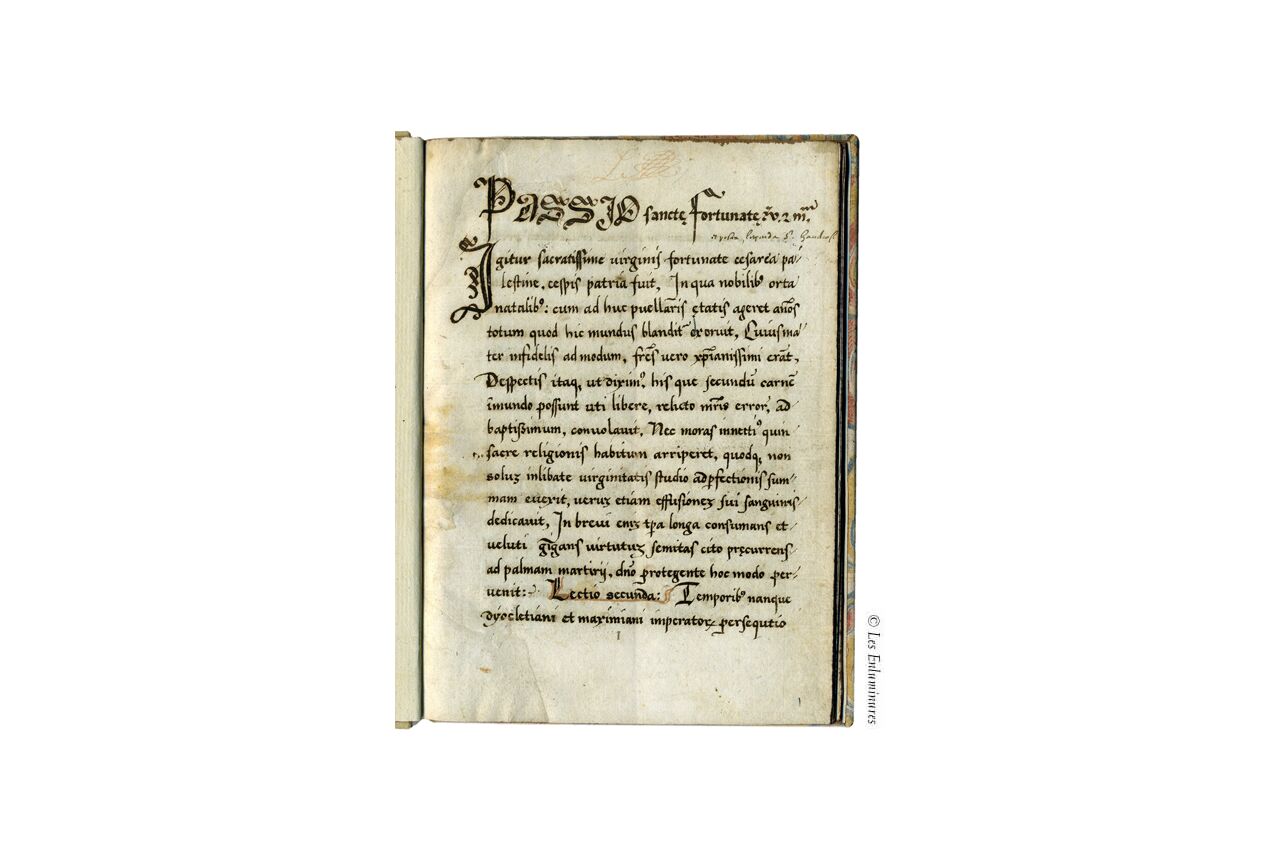 PASSIO sanctę fortunatę v. 2 m̅
Igitur sacratissime virginis fortunate cesarea pa/
lestine, cespis patria fuit, In qua nobilibꝰ orta
natalibꝰ: cum ad huc puellaris ętatis ageret an̅os
totum quod hic mundus blandit᷑ exoruit, Cuius ma/
ter infidelis ad modum, fr̅es vero xp̅ianissimi erāt,
Despectis itaqꝫ ut diximꝰ, his que secundū carnē
īmundo possunt uti libere, relicto mr̅is error, ad
baptissimum, convolavit, Nec moras innetti quin
sacre religionis habitum arriperet, quodqꝫ non
soluꝫ inlibate virginitatis studio ad ꝑfectionis sum/
mam evexit, veruꝫ etiam effusioneꝫ sui sanguinis/
dedicavit, In brevi eniꝫ tp̅a longa consumans et/
veluti gigans virtutuꝫ semitas cito pręcurrens/
ad palmam martirij, dn̅o protegente hoc modo per/
venit:~ Lectio secunda: Temporibꝰ nanque
dyocletiani et maximiani imperatoꝝ persequtio
1
1
© Les Enluminures